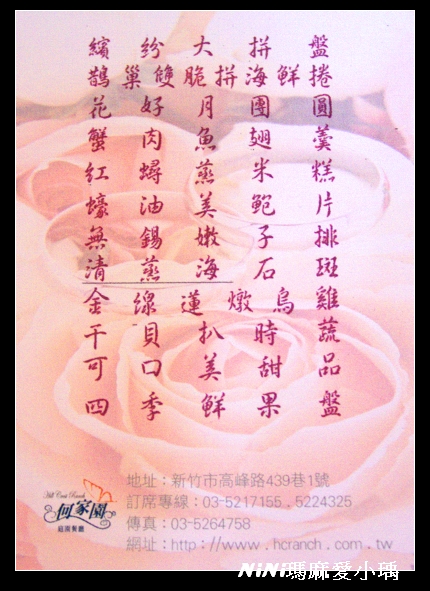 繽紛大拼盤
鵲巢雙脆拼海鮮捲
花好月團圓
蟹肉魚翅羹
紅蟳蒸米糕
蠔油美鮑片
無錫嫩子排
清蒸海石斑
金線蓮燉烏雞
干貝扒時蔬
可口美甜品
四季鮮果盤
Hill Crest Ranch
何家園
庭園餐廳
地址：新竹市高峰路439巷1號
訂席專線：03-5217155．5224325
傳真：03-5264758
網址：http://www.hcranch.com.tw
NiNi瑪麻愛小瑀